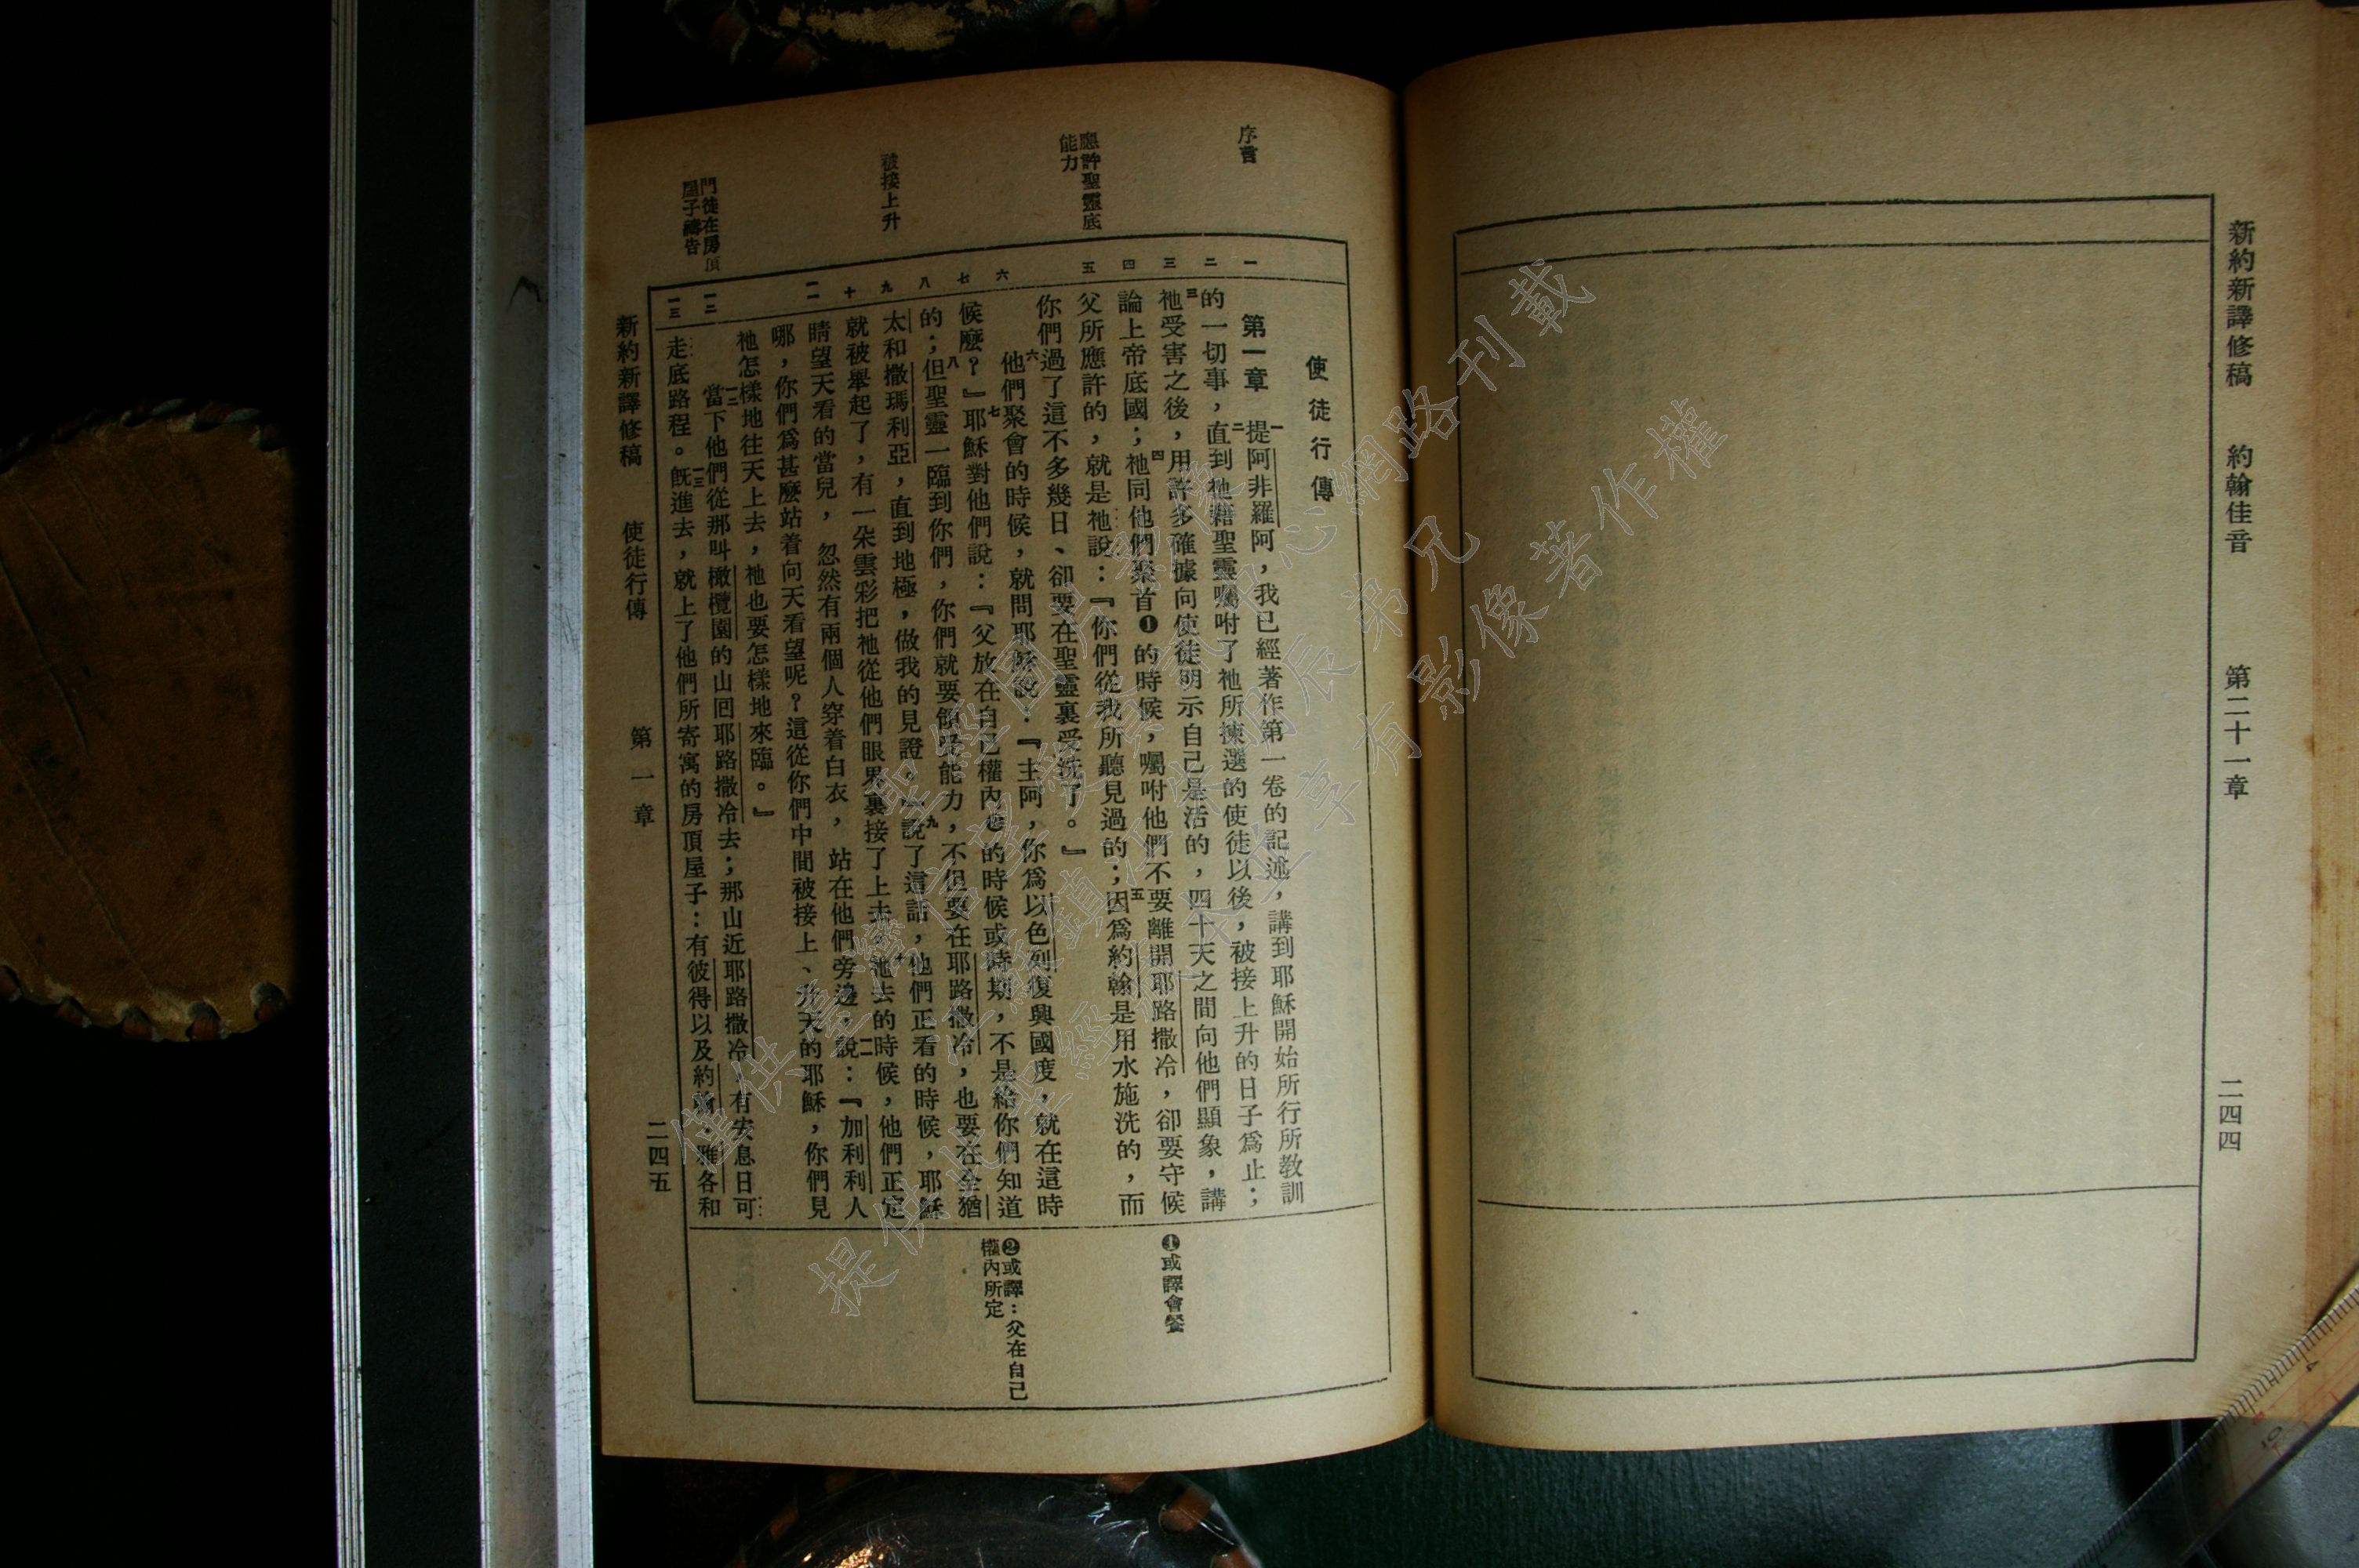 新約新譯修稿　約翰佳音　第二十一章　二四四
序言
應許聖靈底
能力
被接上升
門徒在房頂
屋子禱告
一 二 三 四 五 六 七 八 九 十 一一 一二 一三
使徒行傳
第一章　一提阿非羅阿，我已經著作第一卷的記述，講到耶穌開始所行所教訓
的一切事，二直到祂藉聖靈囑咐了祂所揀選的使徒以後，被接上升的日子爲止；
三祂受害之後，用許多確據向使徒明示自己是活的，四十天之間向他們顯象，講
論上帝底國；四祂同他們聚首❶的時候，囑咐他們不要離開耶路撒冷，卻要守候
父所應許的，就是祂說：『你們從我所聽見過的；五因爲約翰是用水施洗的，而
你們過了這不多幾日、卻要在聖靈裏受洗了。』
六他們聚會的時候，就問耶穌說：『主阿，你爲以色列復興國度，就在這時
候麼？』七耶穌對他們說：『父放在自己權內❷的時候或時期，不是給你們知道
的；八但聖靈一臨到你們，你們就要領受能力，不但要在耶路撒冷，也要在全猶
太和撒瑪利亞，直到地極，做我的見證。』九說了這話，他們正看的時候，耶穌
就被舉起了，有一朵雲彩把祂從他們眼界裏接了上去。十祂去的時候，他們正定
睛望天看的當兒，忽然有兩個人穿着白衣，站在他們旁邊，一一說：『加利利人
哪，你們爲甚麼站着向天看望呢？這從你們中間被接上、升天的耶穌，你們見
祂怎樣地往天上去，祂也要怎樣地來臨。』
一二當下他們從那叫橄欖園的山回耶路撒冷去；那山近耶路撒冷，有安息日可
走底路程。一三旣進去，就上了他們所寄寓的房頂屋子：有彼得以及約翰、雅各和
❶或譯會餐
❷或譯：父在自己
權內所定
新約新譯修稿　使徒行傳　第一章　二四五